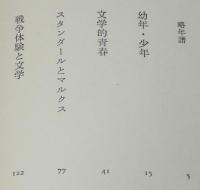 略年譜 5
幼年・少年 15
文学的青春 41
スタンダールとマルクス 77
戦争体験と文学 122